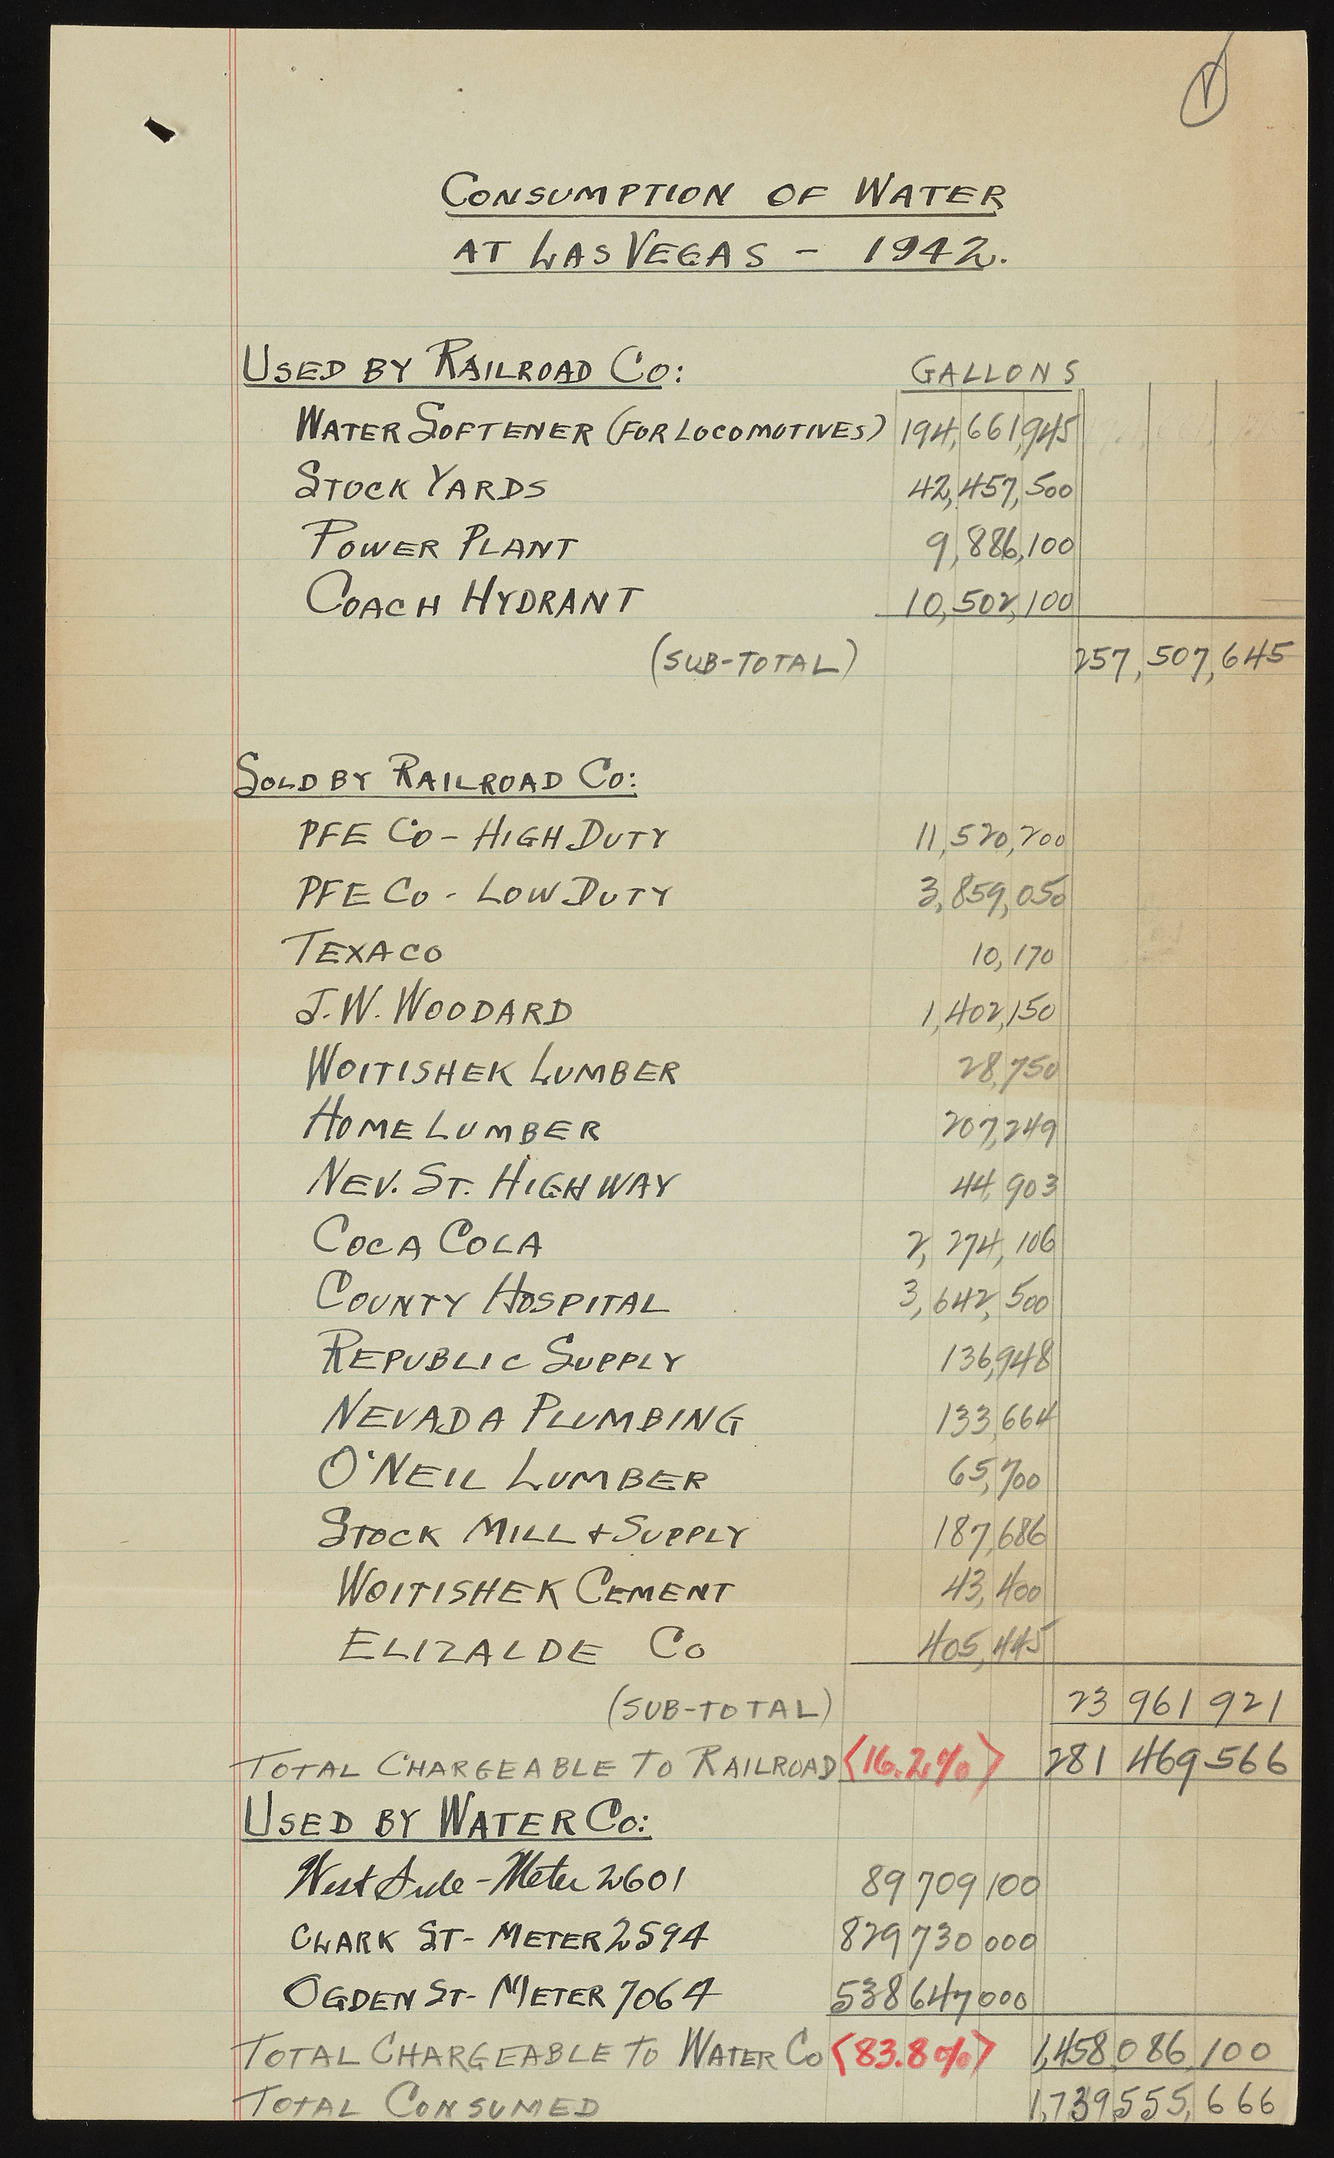 CONSUMPTION OF WATER
AT LAS VEGAS - 1942.
USED BY RAILROAD CO: GALLONS
WATER SOFTENER (FOR LOCOMOTIVES) 194,661,945
STOCK YARDS 42,457,500
POWER PLANT 9,886,100
COACH HYDRANT 10,502,100
(SUB-TOTAL) 257,507,645
SOLD BY RAILROAD CO:
PFE CO - HIGH DUTY 11,520,200
PFE CO - LOW DUTY 3,859,050
TEXACO 10,170
J.W. WOODARD 1,402,150
WOITISHEK LUMBER 28,750
HOME LUMBER 207,249
NEV. ST. HIGHWAY 44,903
COCA COLA 2,274,106
COUNTY HOSPITAL 3,642,500
REPUBLIC SUPPLY 136,948
NEVADA PLUMBING 133,664
O'NEIL LUMBER 65,700
STOCK MILL & SUPPLY 187,686
WOITISHEK CEMENT 43,400
ELIZALDE CO 405,445
(SUB-TOTAL) 23 961 921
TOTAL CHARGEABLE TO RAILROAD <16.2%> 281 469 566
USED BY WATER CO:
West Side - Meter 2601 89 709 100
CLARK ST - METER 2594 829 730 000
OGDEN ST - METER 7064 538 647 000
TOTAL CHARGEABLE TO WATER CO <83.8%> 1,458,086,100
TOTAL CONSUMED 1,739,555,666